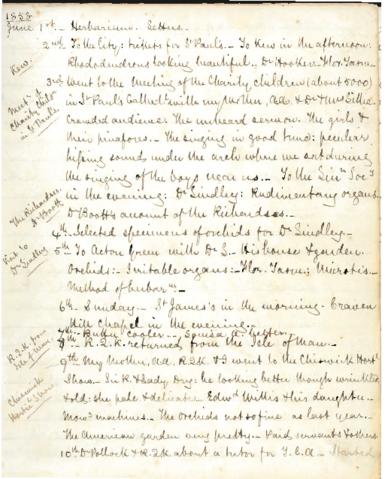 1858
June 1st - Herbarium. Letters.
2nd To the City: tickets for St Paul's - To Kew in the afternoon.
Kew.
Rhododendrons looking beautiful. Dr Hooker - Flor. Tasm:
3rd Went to the Meeting of the Charity children (about 5000)
Meetg of Charity Childn in St Paul's
in St Paul's Cathedl with my Mother, Ad. & Dr & Mrs
Crowded audience: the unheard sermon. The girls &
their pinafores - The singing in good tune: peculiar
hissing sound under the arch where we sat during
the singing of the boys near us. - To the Linn. Socy
in the evening: Dr Lindley: Rudimentary organs
The Richardsons Dr Boott
Dr Boott's account of the Richardsons -
4th - Selected specimens of orchids for Dr Lindley -
Visit to Dr Lindley
5th To Acton Green with Dr L - His house & garden.
Orchids: - Imitable organs: - Flor. Tasm: Microtis -
Method of herbarm -
6th - Sunday - St James's in the morning - Craven
Hill Chapel in the evening -
7th - cooler -
R.2.K. from Isle of Man.
8th - R.2.K. returned from the Isle of Man -
9th My Mother, Ad. R2K & I went to the Chiswick Hortl
Chiswick Hortl Show
Show - Sir R. & Lady : he looking better though wrinkled
& old: she pale & delicate. Edwd Willis & his daughter -
Mowg machines - The Orchids not so fine as last year -
The American garden very pretty - Paid servants & others
10th Dr Pollock & R.2.K about a tutor for T.E.A - Started